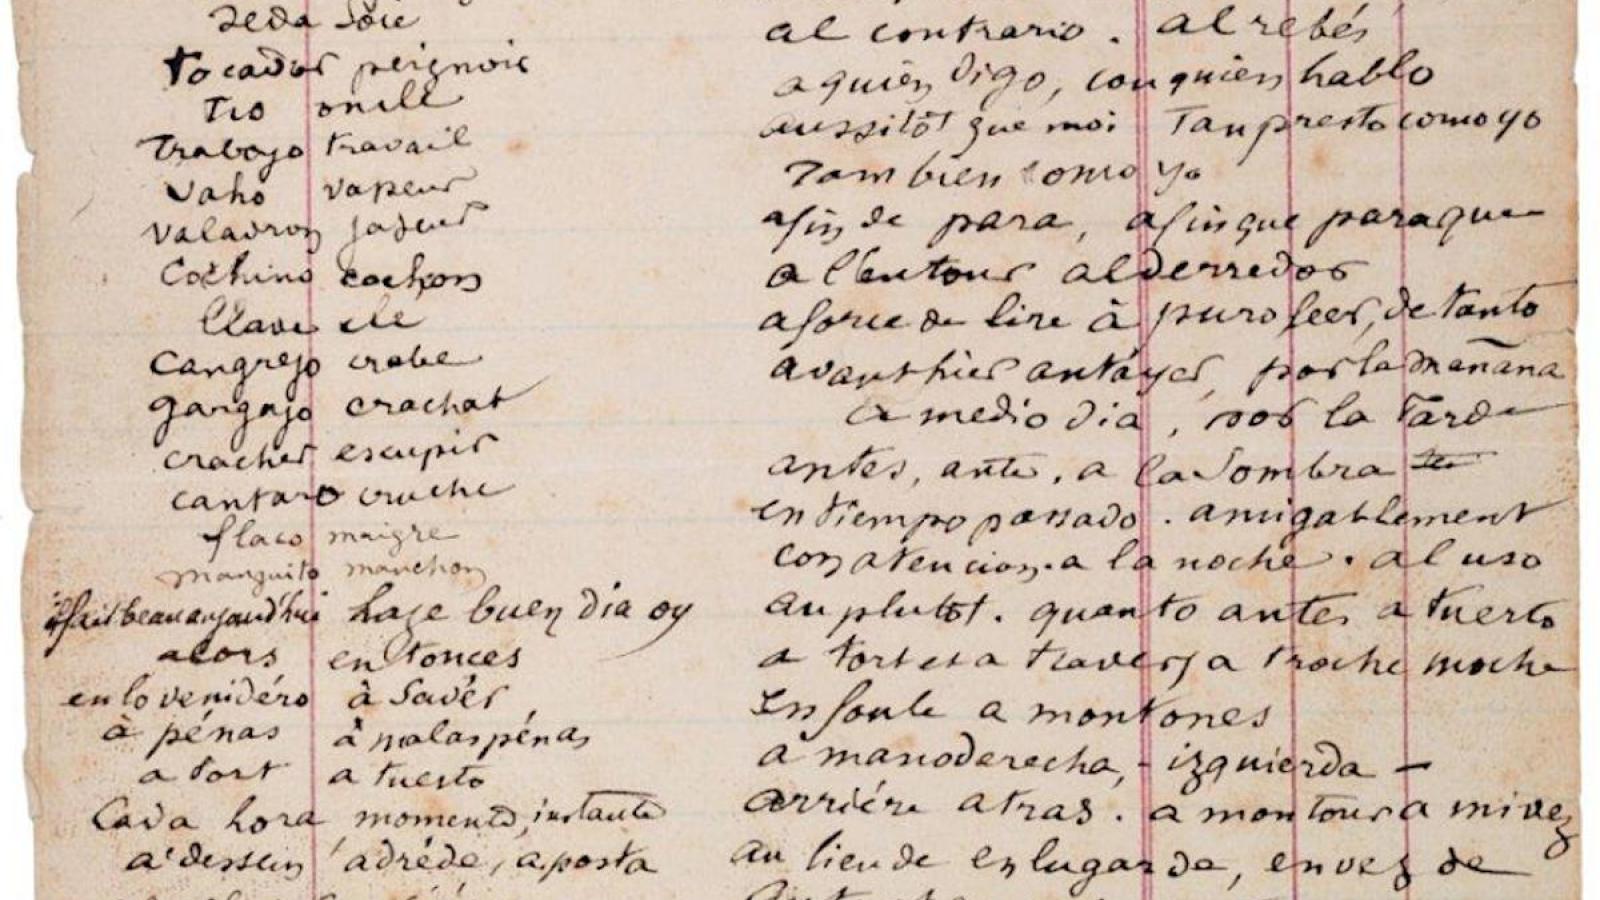 seda soie
tocador peignoir
tio oncle
trabajo travail
vaho vapeur
valadron
cochino cochon
llave cle
cangrejo crabe
gargajo crachat
cracher escupir
cantaro cruche
flaco maigre
manguito manchon
il fait beau aujourd'hui haje buen dia oy
alors entonces
en lo venidéro à Savér
à pénas à malas pénas
a tort a tuerto
Cada hora momento, instante
a dessein adréde, aposta
al contrario. al rebés
a quien digo, con quien hablo
aussitôt que moi Tan presto como yo
Tambien como yo
afin de para, afin que para que
a l'entour al derredor
a force de lire à puro leer, de tanto
avant hier antáyer, por la mañana
a medio dia, por la tarde
antes, ante. a la Sombra
en tiempo passado. amigablement
con atencion. a la noche. al uso
au plutôt. quanto antes a tuerto
a tort et a travers a troche moche
en foule a montones
a mano derecha, - izquierda -
arriére atras. a mon tour a mi vez
au lieu de en lugar de, en vez de